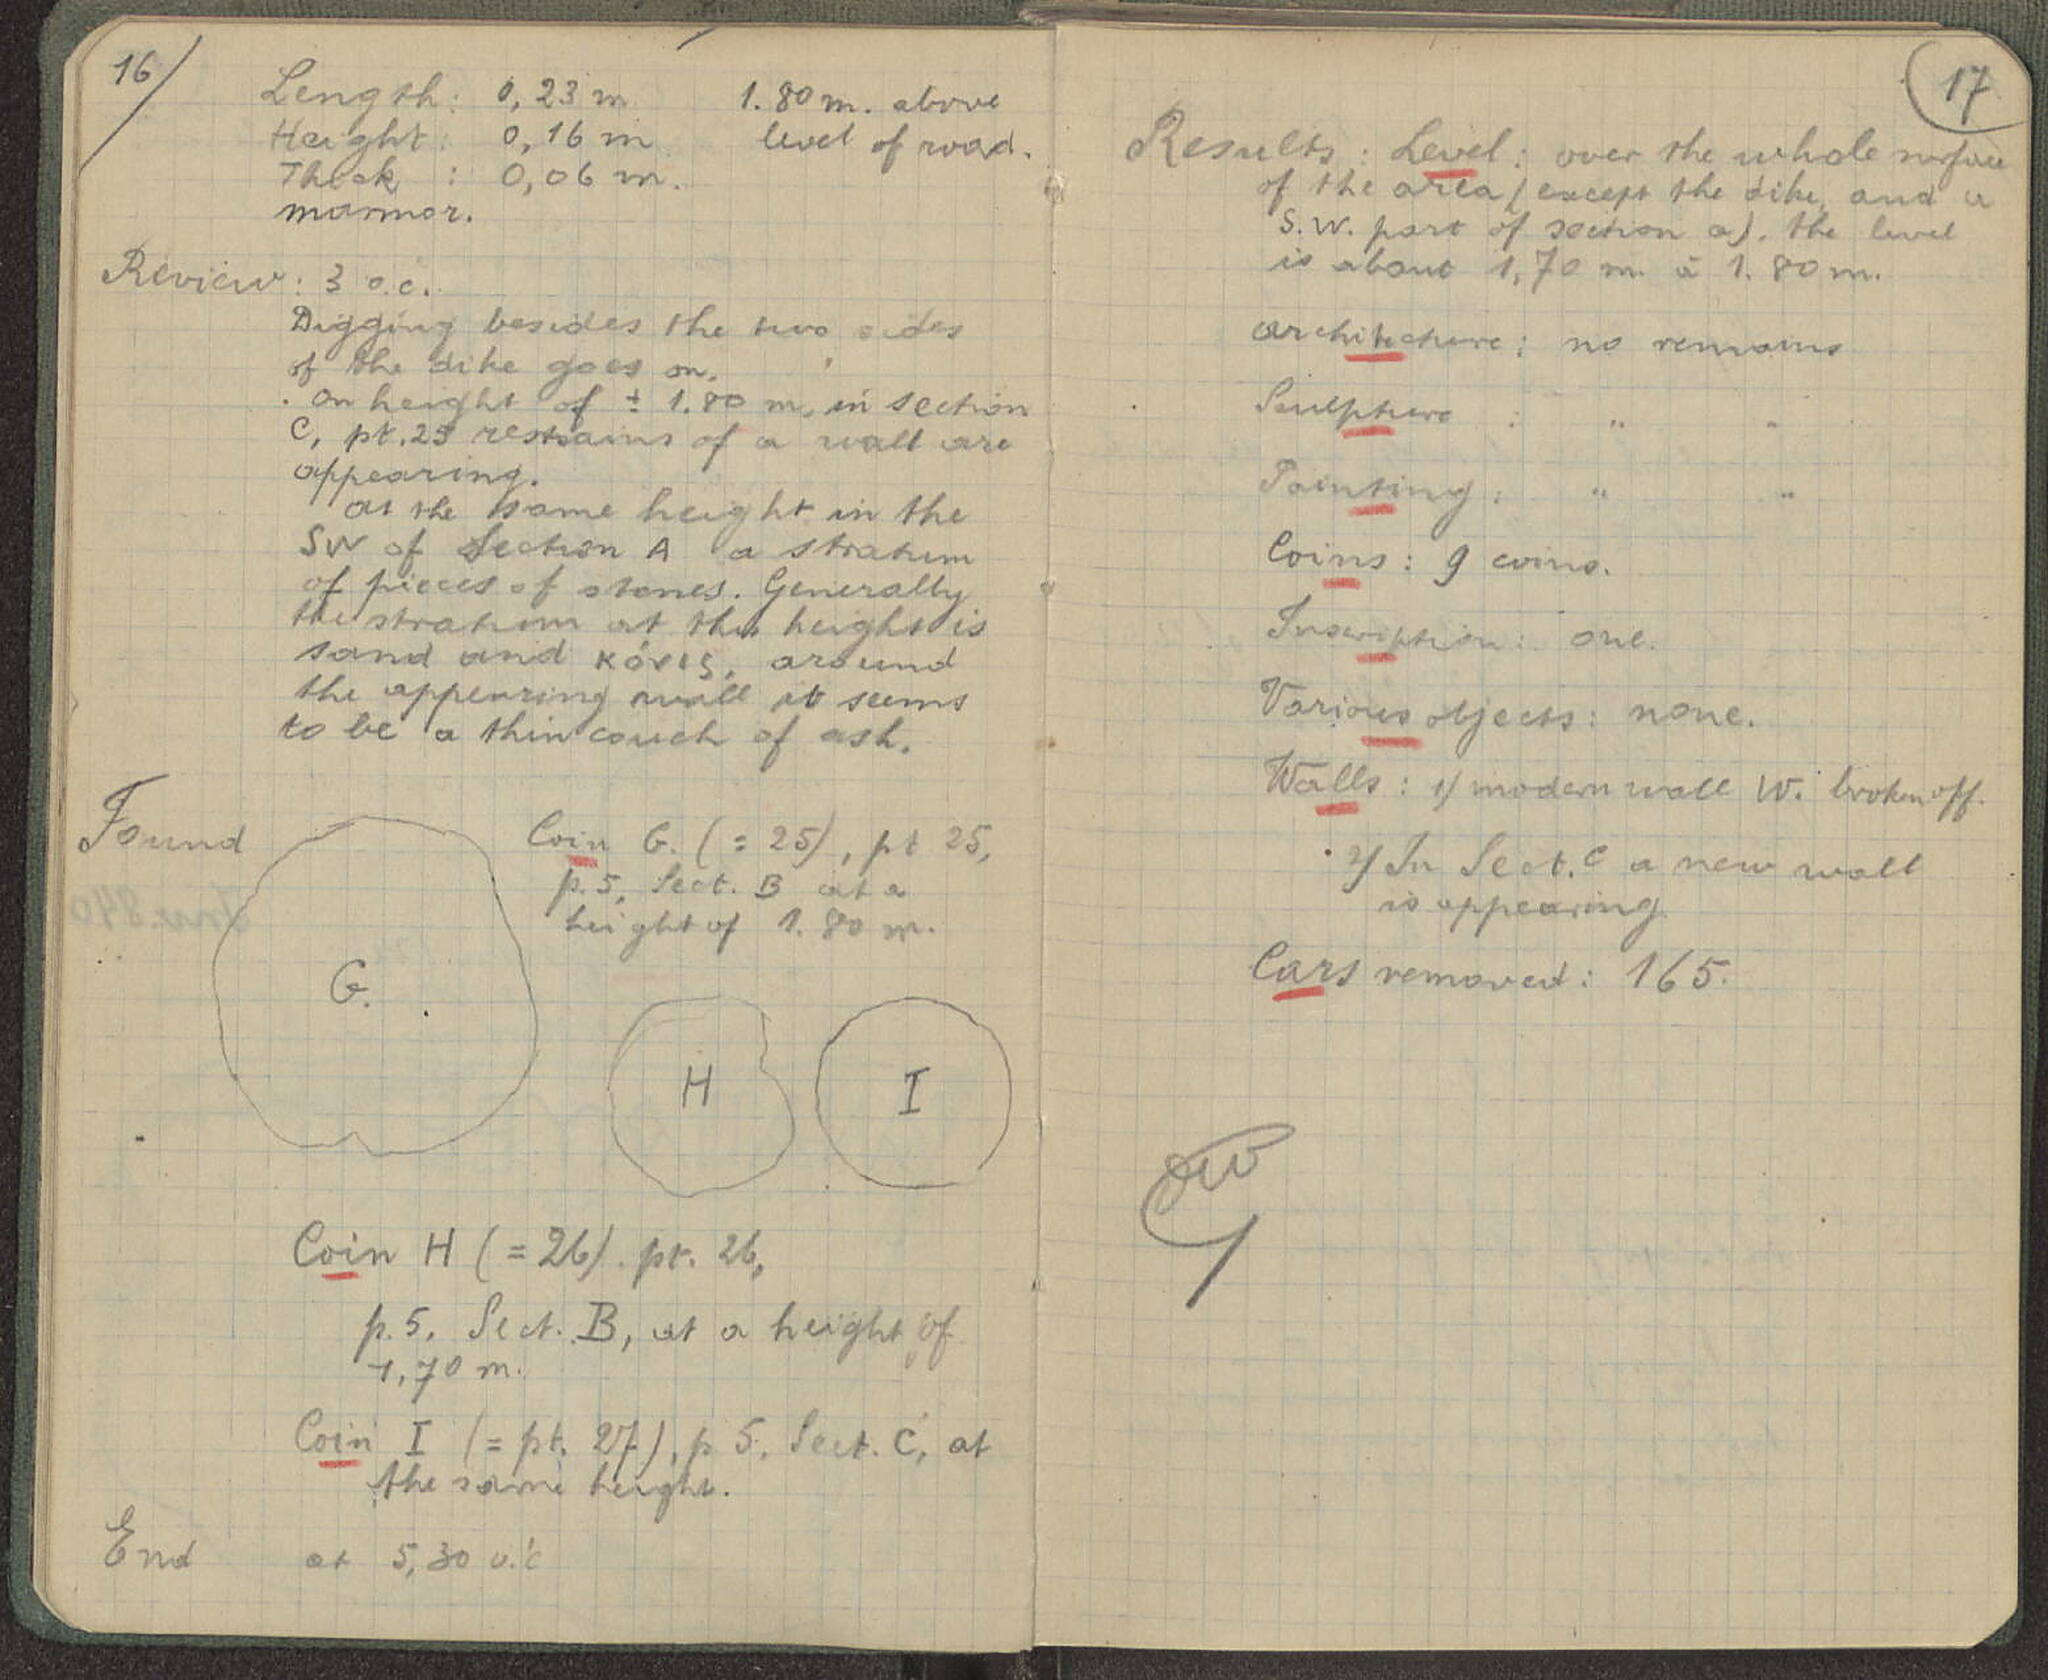 16/
Length: 0,23 m 1.80 m. above
Height: 0,16 m level of road.
Thick : 0,06 m.
marmor.
Review: 3 o.c.
Digging besides the two sides
of the dike goes on.
On height of ± 1.80 m, in section
C, pt. 25 restrains of a wall are
appearing.
at the same height in the
SW of Section A a stratum
of pieces of stones. Generally
the stratum at this height is
sand and κόνις, around
the appearing wall it seems
to be a thin couch of ash.
Found
Coin G. (= 25), pt 25,
p.5, Sect. B at a
height of 1.80 m.
G.
H
I
Coin H (= 26). pt. 26,
p.5, Sect. B, at a height of
1,70 m.
Coin I (= pt. 27), p 5, Sect. C, at
the same height.
End at 5,30 o.'c
17
Results: Level: over the whole surface
of the area (except the dike, and a
S.W. part of section a). the level
is about 1,70 m. à 1.80 m.
architecture: no remains
Sculpture : " "
Painting: " "
Coins: 9 coins.
Inscription: one.
Various objects: none.
Walls: 1) modern wall W. broken off.
2) In Sect. C a new wall
is appearing
Cars removed: 165.